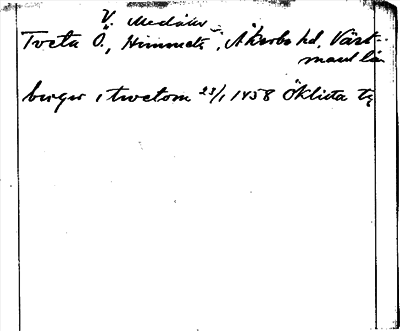 V. Medåker
Tveta Ö., Himmeta s:n, Åkerbo hd, Väst-
manl. län
birger i twetom 23/1 1458 Öklista